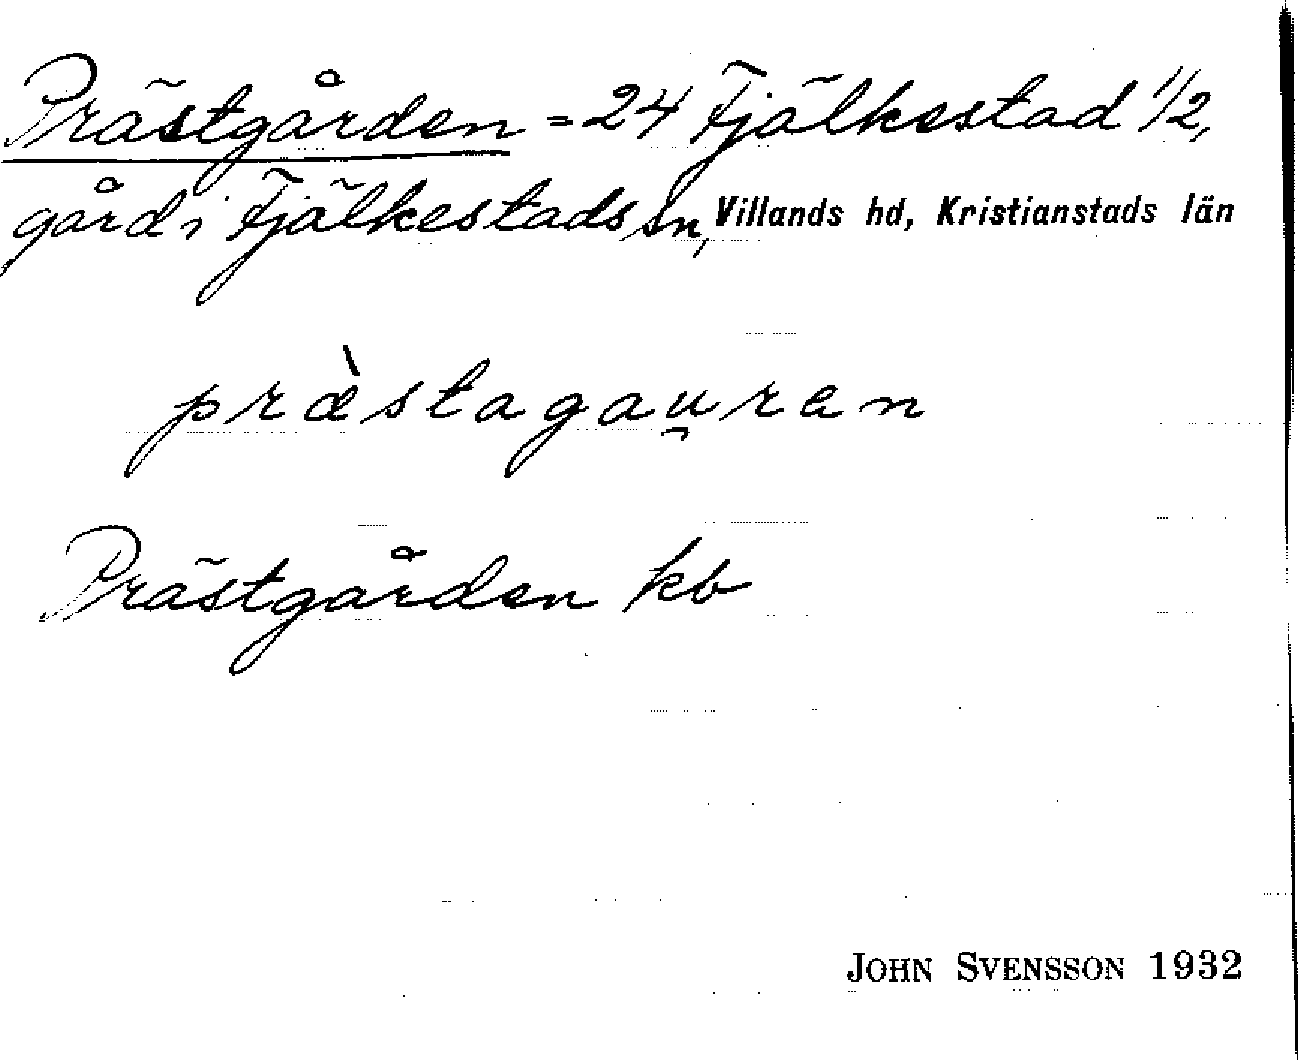 Prästgården = 24 Fjälkestad 1/2,
gård i Fjälkestads sn, Villands hd, Kristianstads län
præ̀stagau̯ran
Prästgården kb
JOHN SVENSSON 1932